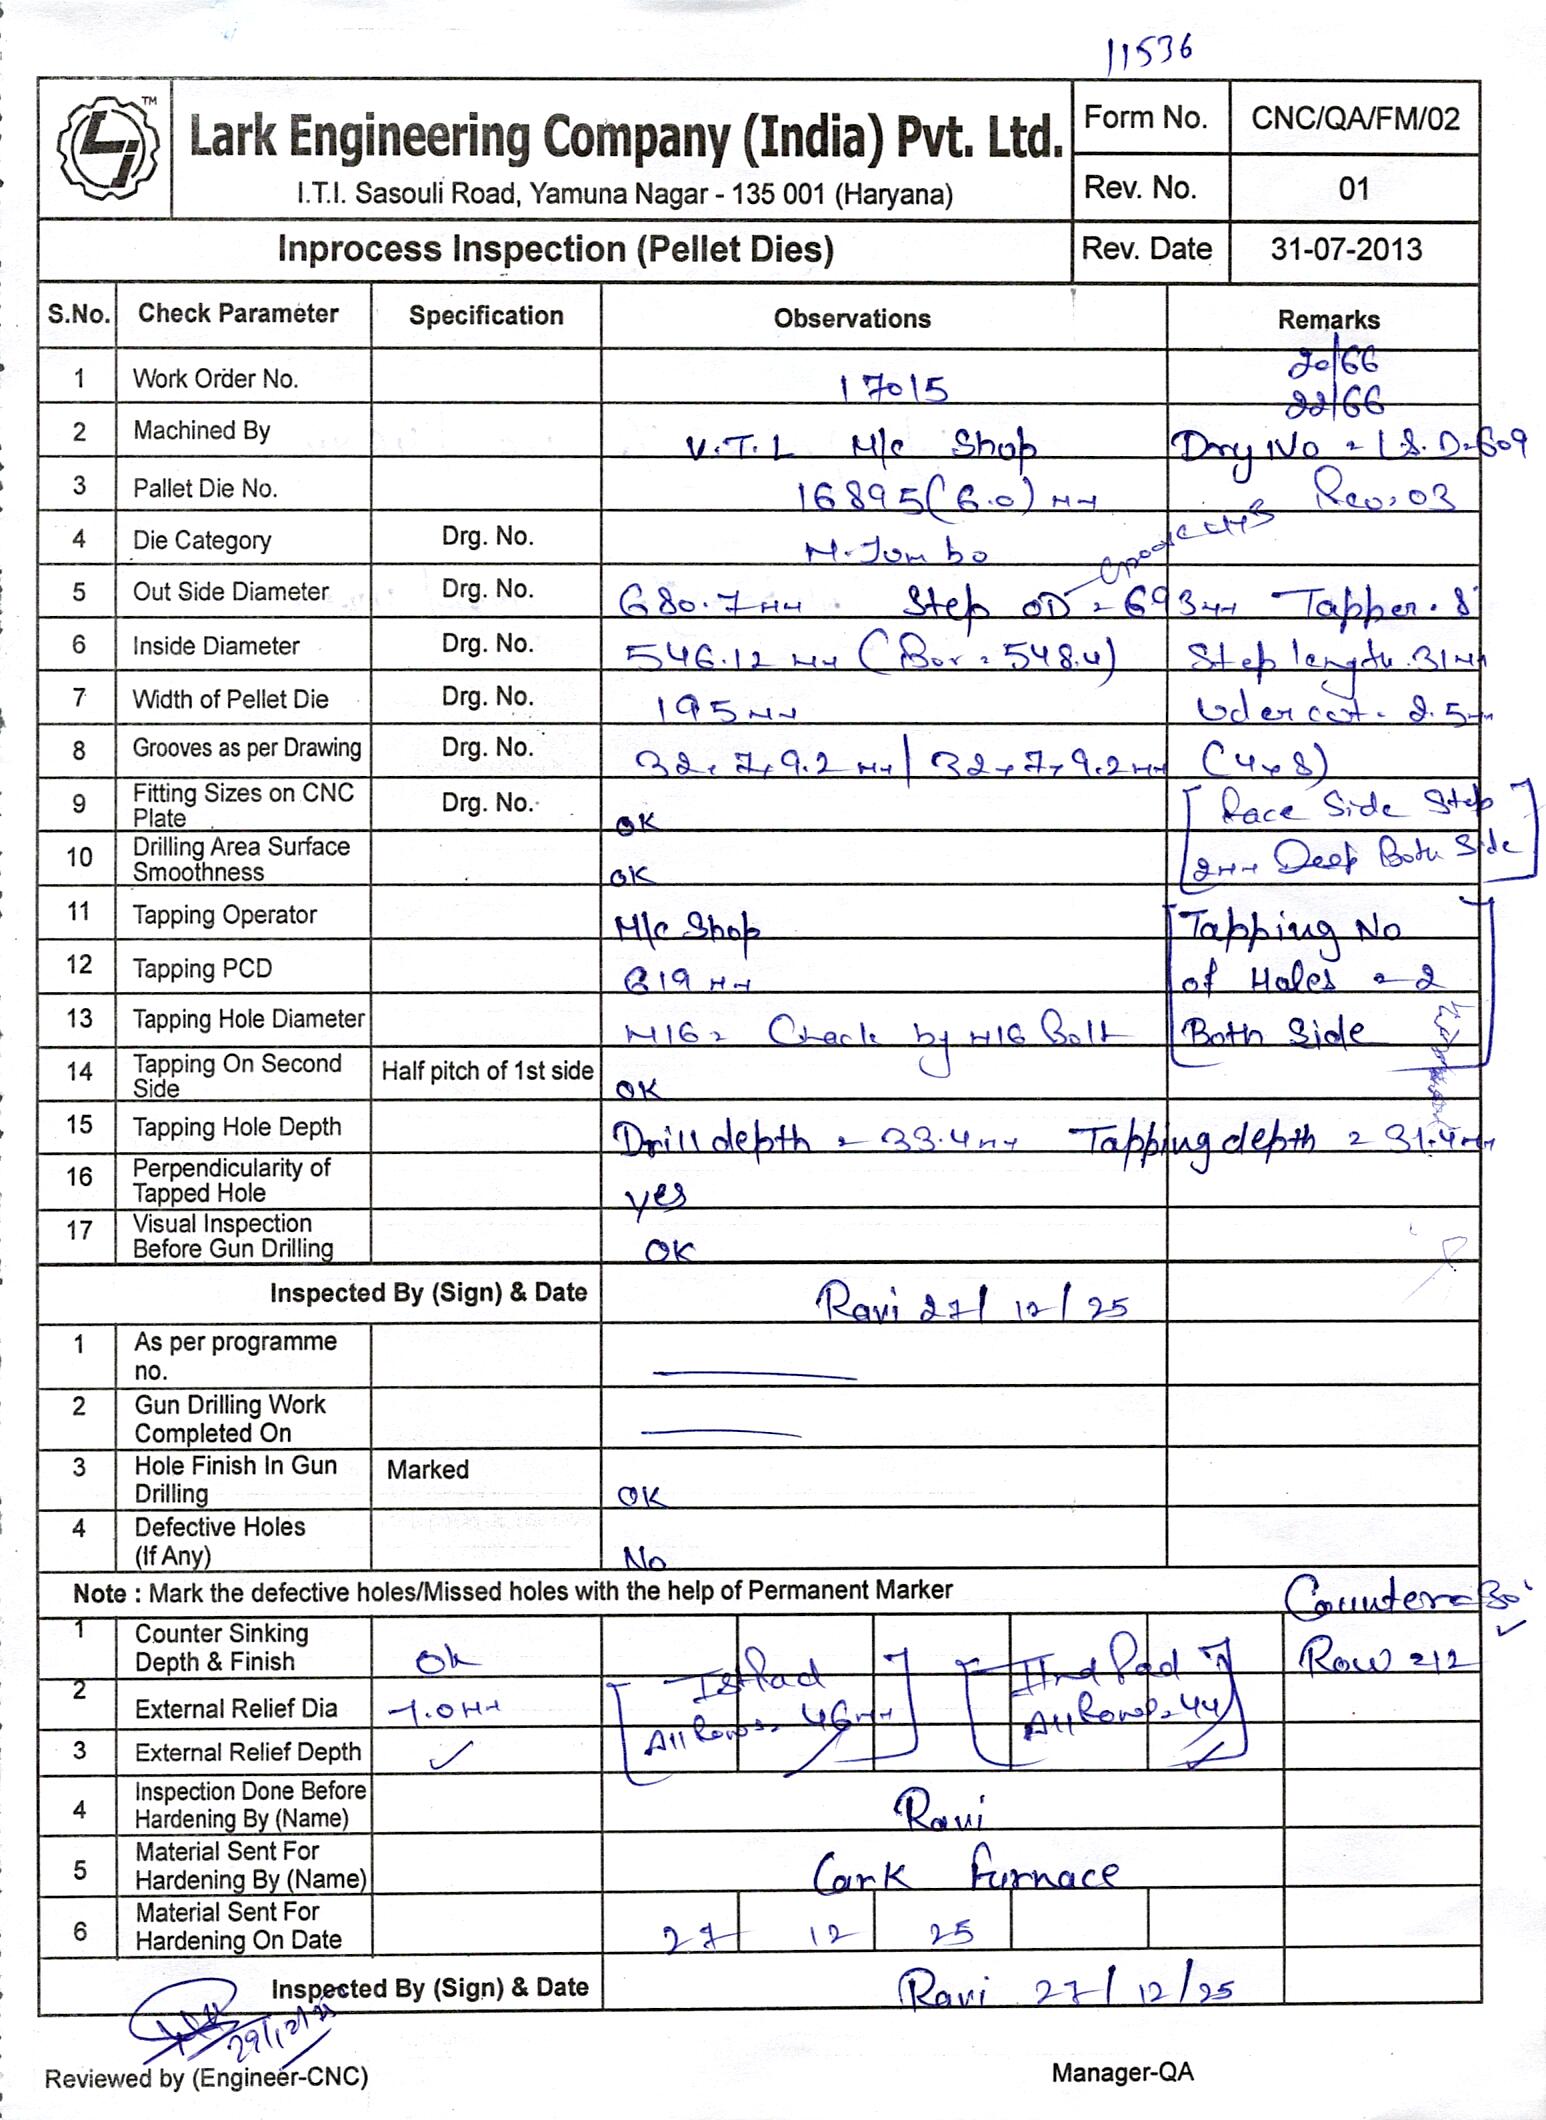 11536
LJ TM
Lark Engineering Company (India) Pvt. Ltd.
I.T.I. Sasouli Road, Yamuna Nagar - 135 001 (Haryana)
Form No. CNC/QA/FM/02
Rev. No. 01
Inprocess Inspection (Pellet Dies) Rev. Date 31-07-2013
S.No. Check Parameter Specification Observations Remarks
20/66
1 Work Order No. 17015
22/66
2 Machined By V.T.L M/c Shop
3 Pallet Die No. 16895(6.0) MM Rev. 03
4 Die Category Drg. No. M. Jumbo
5 Out Side Diameter Drg. No. 680.7MM Step OD = 693MM Tapper. 8°
6 Inside Diameter Drg. No. 546.12 MM (Bor = 548.4) Step length. 31MM
7 Width of Pellet Die Drg. No. 195MM Udercot. 2.5MM
8 Grooves as per Drawing Drg. No. 32×7×9.2 MM | 32×7×9.2MM (4×8)
9 Fitting Sizes on CNC Plate Drg. No. OK [Race Side Step
10 Drilling Area Surface Smoothness OK 2MM Deep Both Side]
11 Tapping Operator M/c Shop [Tapping No
12 Tapping PCD 619 MM of Holes = 2
13 Tapping Hole Diameter M16 = Check by M16 Bolt Both Side]
14 Tapping On Second Side Half pitch of 1st side OK
15 Tapping Hole Depth Drill depth = 33.4MM Tapping depth = 31.4MM
16 Perpendicularity of Tapped Hole yes
17 Visual Inspection Before Gun Drilling OK
Inspected By (Sign) & Date Ravi 27/12/25
1 As per programme no.
2 Gun Drilling Work Completed On
3 Hole Finish In Gun Drilling Marked OK
4 Defective Holes (If Any) No
Note : Mark the defective holes/Missed holes with the help of Permanent Marker
1 Counter Sinking Depth & Finish Ok [Ist Pad] [IInd Pad] Row = 12
2 External Relief Dia 7.0MM All Rows = 46MM All Rows = 44
3 External Relief Depth ✓
4 Inspection Done Before Hardening By (Name) Ravi
5 Material Sent For Hardening By (Name) Lark Furnace
6 Material Sent For Hardening On Date 27 12 25
Inspected By (Sign) & Date Ravi 27/12/25
29/12/25
Reviewed by (Engineer-CNC) Manager-QA